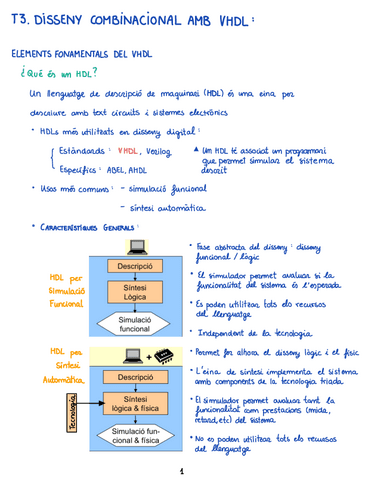 T3. DISSENY COMBINACIONAL AMB VHDL:
ELEMENTS FONAMENTALS DEL VHDL
¿Qué és un HDL?
Un llenguatge de descripció de maquinari (HDL) és una eina per
descriure amb text circuits i sistemes electrònics
• HDLs més utilitzats en disseny digital:
Estàndards: VHDL, Verilog
Específics: ABEL, AHDL
★ Un HDL té associat un programari
que permet simular el sistema
descrit
• Usos més comuns: - simulació funcional
- síntesi automàtica
• CARACTERÍSTIQUES GENERALS:
HDL per
Simulació
Funcional
Descripció
Síntesi
Lògica
Simulació
funcional
• Fase abstracta del disseny: disseny
funcional / lògic
• El simulador permet avaluar si la
funcionalitat del sistema és l'esperada
• Es poden utilitzar tots els recursos
del llenguatge
• Independent de la tecnologia
HDL per
Síntesi
Automàtica
Tecnologia
Descripció
Síntesi
lògica & física
Simulació fun-
cional & física
• Permet fer alhora el disseny lògic i el físic
• L'eina de síntesi implementa el sistema
amb components de la tecnologia triada
• El simulador permet avaluar tant la
funcionalitat com prestacions (mida,
retard, etc) del sistema
• No es poden utilitzar tots els recursos
del llenguatge
1